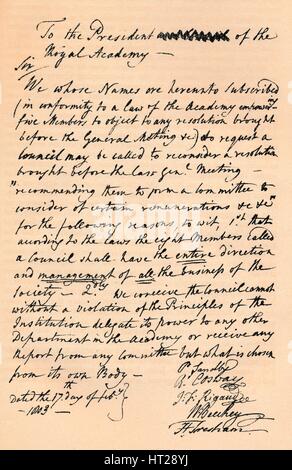 To the President of the
Royal Academy —
Sir
We whose Names are hereunto subscribed
(in conformity to a law of the Academy empowers
five Members to object to any resolution brought
before the General Meeting &c) do request a
Council may be called to reconsider a resolution
brought before the last Genl Meeting —
"recommending them to form a Committee to
consider of certain remunerations &c &c"
for the following reasons to wit, 1st that
acording to the laws the eight Members called
a Council shall have the entire direction
and management of all the business of the
Society — 2dly We conceive the Council cannot
without a violation of the Principles of the
Institution delegate to power to any other
Department in the Academy or receive any
Report from any Committee but what is chosen
from its own Body —
P. Sandby
R. Cosway
J. F. Rigaud
dated the 17th day of
1803 —
W Beechey
alamy
Image ID: HT28YJ
www.alamy.com